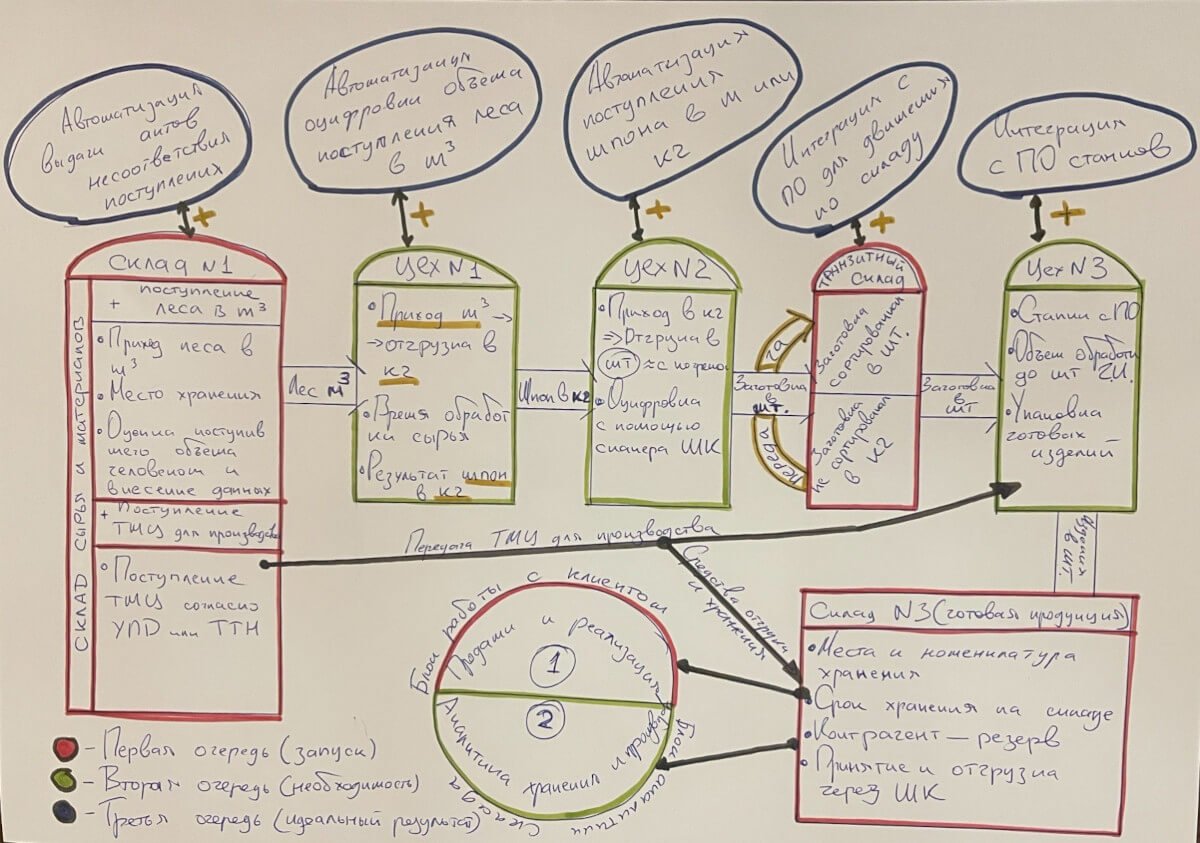 Автоматизация
выдачи актов
несоответствия
поступлениях
Автоматизация
оцифровки объема
поступления леса
в m³
Автоматизация
поступления
шпона в м или
кг
Интеграция с
ПО для движения
по
складу
Интеграция
с ПО станков
+
+
+
+
+
Склад N1
СКЛАД СЫРЬЯ И МАТЕРИАЛОВ
поступление
+ леса в m³
• Приход леса в
m³
• Место хранения
• Оценка поступив
шего объема
человеком и
внесение данных
+ Поступление
ТМЦ для производства
• Поступление
ТМЦ согласно
УПД или ТТН
Лес m³
Цех N1
• Приход m³ →
→ отгрузка в
кг
• Время обработ
ки сырья
• Результат шпон
в кг
Шпон в кг
Цех N2
• Приход в кг
⇒ Отгрузка в
шт ≈ с
• Оцифровка
с помощью
сканера ШК
Заготовка
в
шт.
Транзитный
склад
Заготовка
сортированная
в шт.
Заготовка
не сортирован
в кг
Заготовка
в
шт
Цех N3
• Станки с ПО
• Объем обработки
до шт Г.И.
• Упаковка
готовых
изделий
Передача ТМЦ для производства
Средства отгрузки
и хранения
Изделия
в шт.
Склад N3 (готовая продукция)
• Места и номенклатура
хранения
• Срок хранения на складе
• Контрагент — резерв
• Принятие и отгрузка
через ШК
Блок работы с клиентом
Продажи и реализация
1
2
Аналитика хранения
Блок аналитики
склада
- Первая очередь (запуск)
- Вторая очередь (необходимость)
- Третья очередь (идеальный результат)